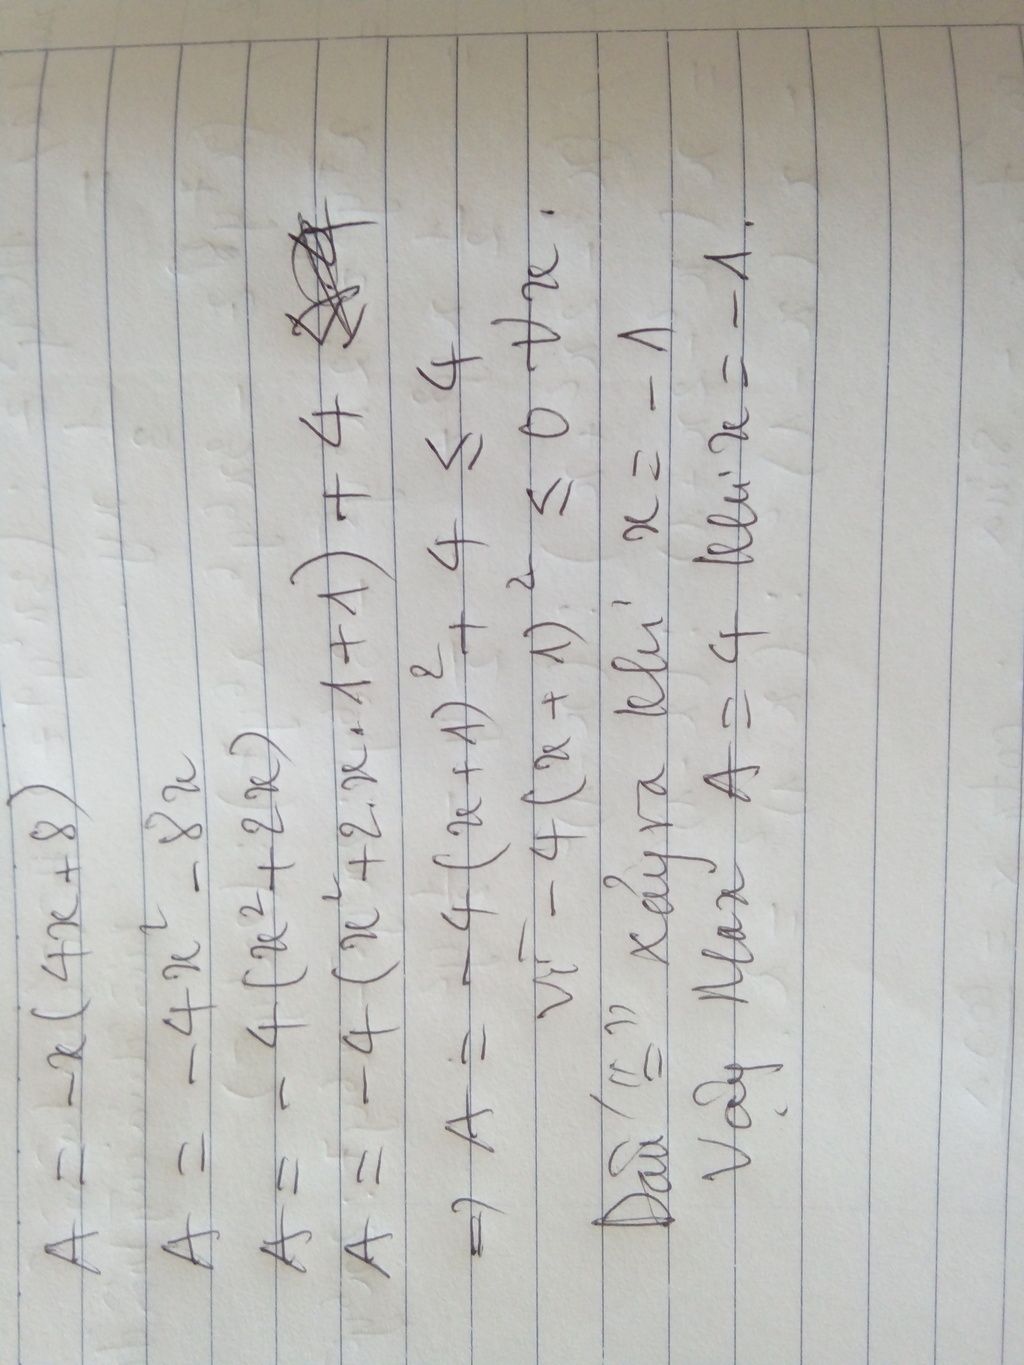 A = -x(4x+8)
A = -4x² -8x
A = -4(x²+2x)
A = -4(x²+2.x.1+1)+4
=> A = -4(x+1)²+4 ≤ 4
Vì -4(x+1)² ≤ 0 ∀x.
Dấu "=" xảy ra khi x = -1
Vậy Max A = 4 khi x = -1.